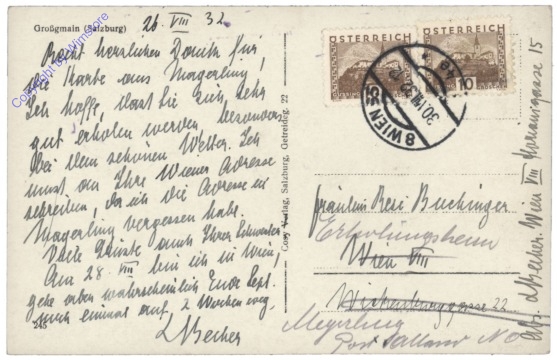 Großgmain (Salzburg)
26 VIII 32
Recht herzlichen Dank für
die Karte aus Mayerling,
Ich hoffe, dass Sie sich sehr
gut erholen werden besonders
bei dem schönen Wetter. Ich
musst an Ihre Wiener Adresse
schreiben, da ich die Adresse in
Mayerling vergessen habe.
Viele Grüsse auch Ihrer Schwester
Am 28. VIII bin ich in Wien,
gehe aber wahrscheinlich Ende Sept.
noch einmal auf 2 Wochen weg.
Becher
245
Copyright by Wimstore
Cosy Verlag, Salzburg, Getreideg. 22
ÖSTERREICH
ÖSTERREICH
10
8 WIEN 65
30.VIII.32
Fräulein Resi Buchinger
Erholungsheim
Wien VIII
Wickenburggasse 22
Mayerling
Post Alland NÖ
Abs. Becher Wien VIII 15